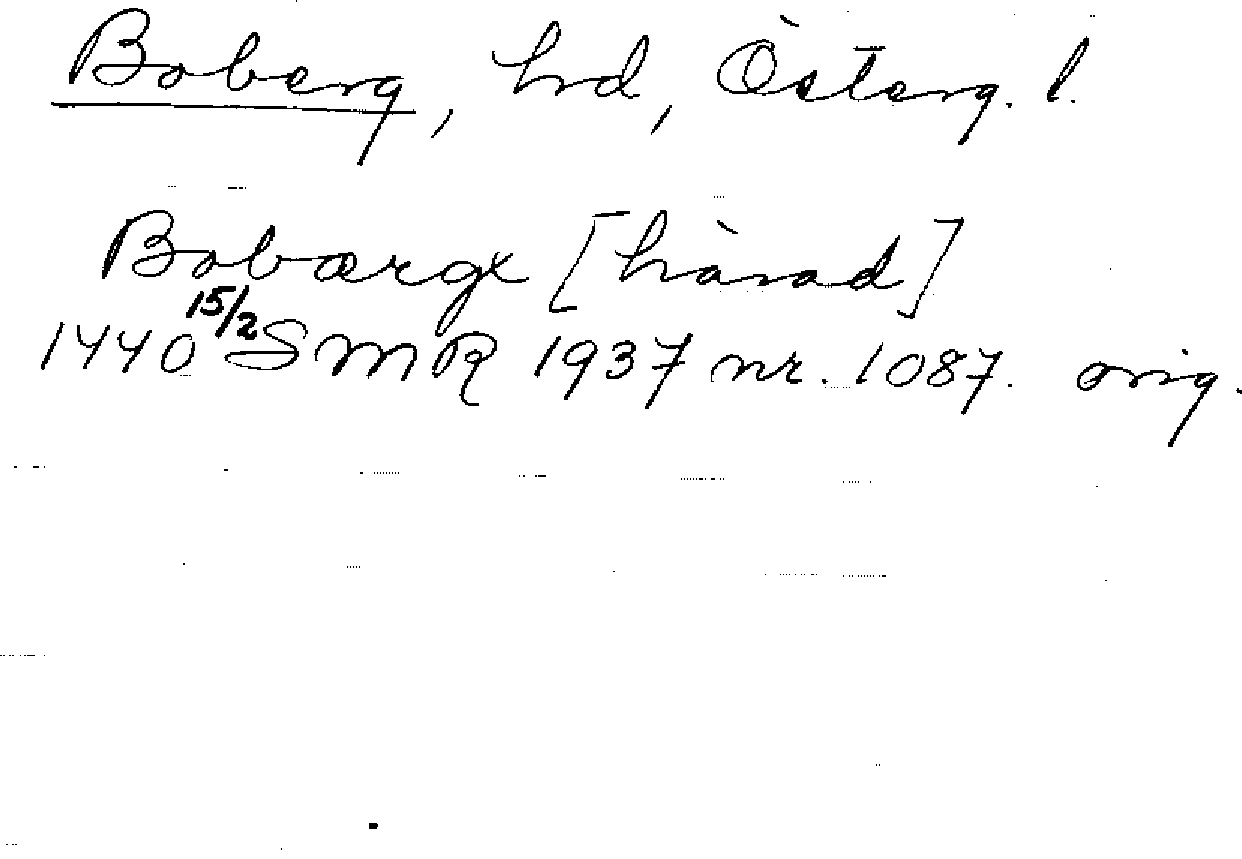 Boberg, hd, Österg. l.
Bobærgx [härad]
1440 15/2 SMR 1937 nr. 1087. orig.